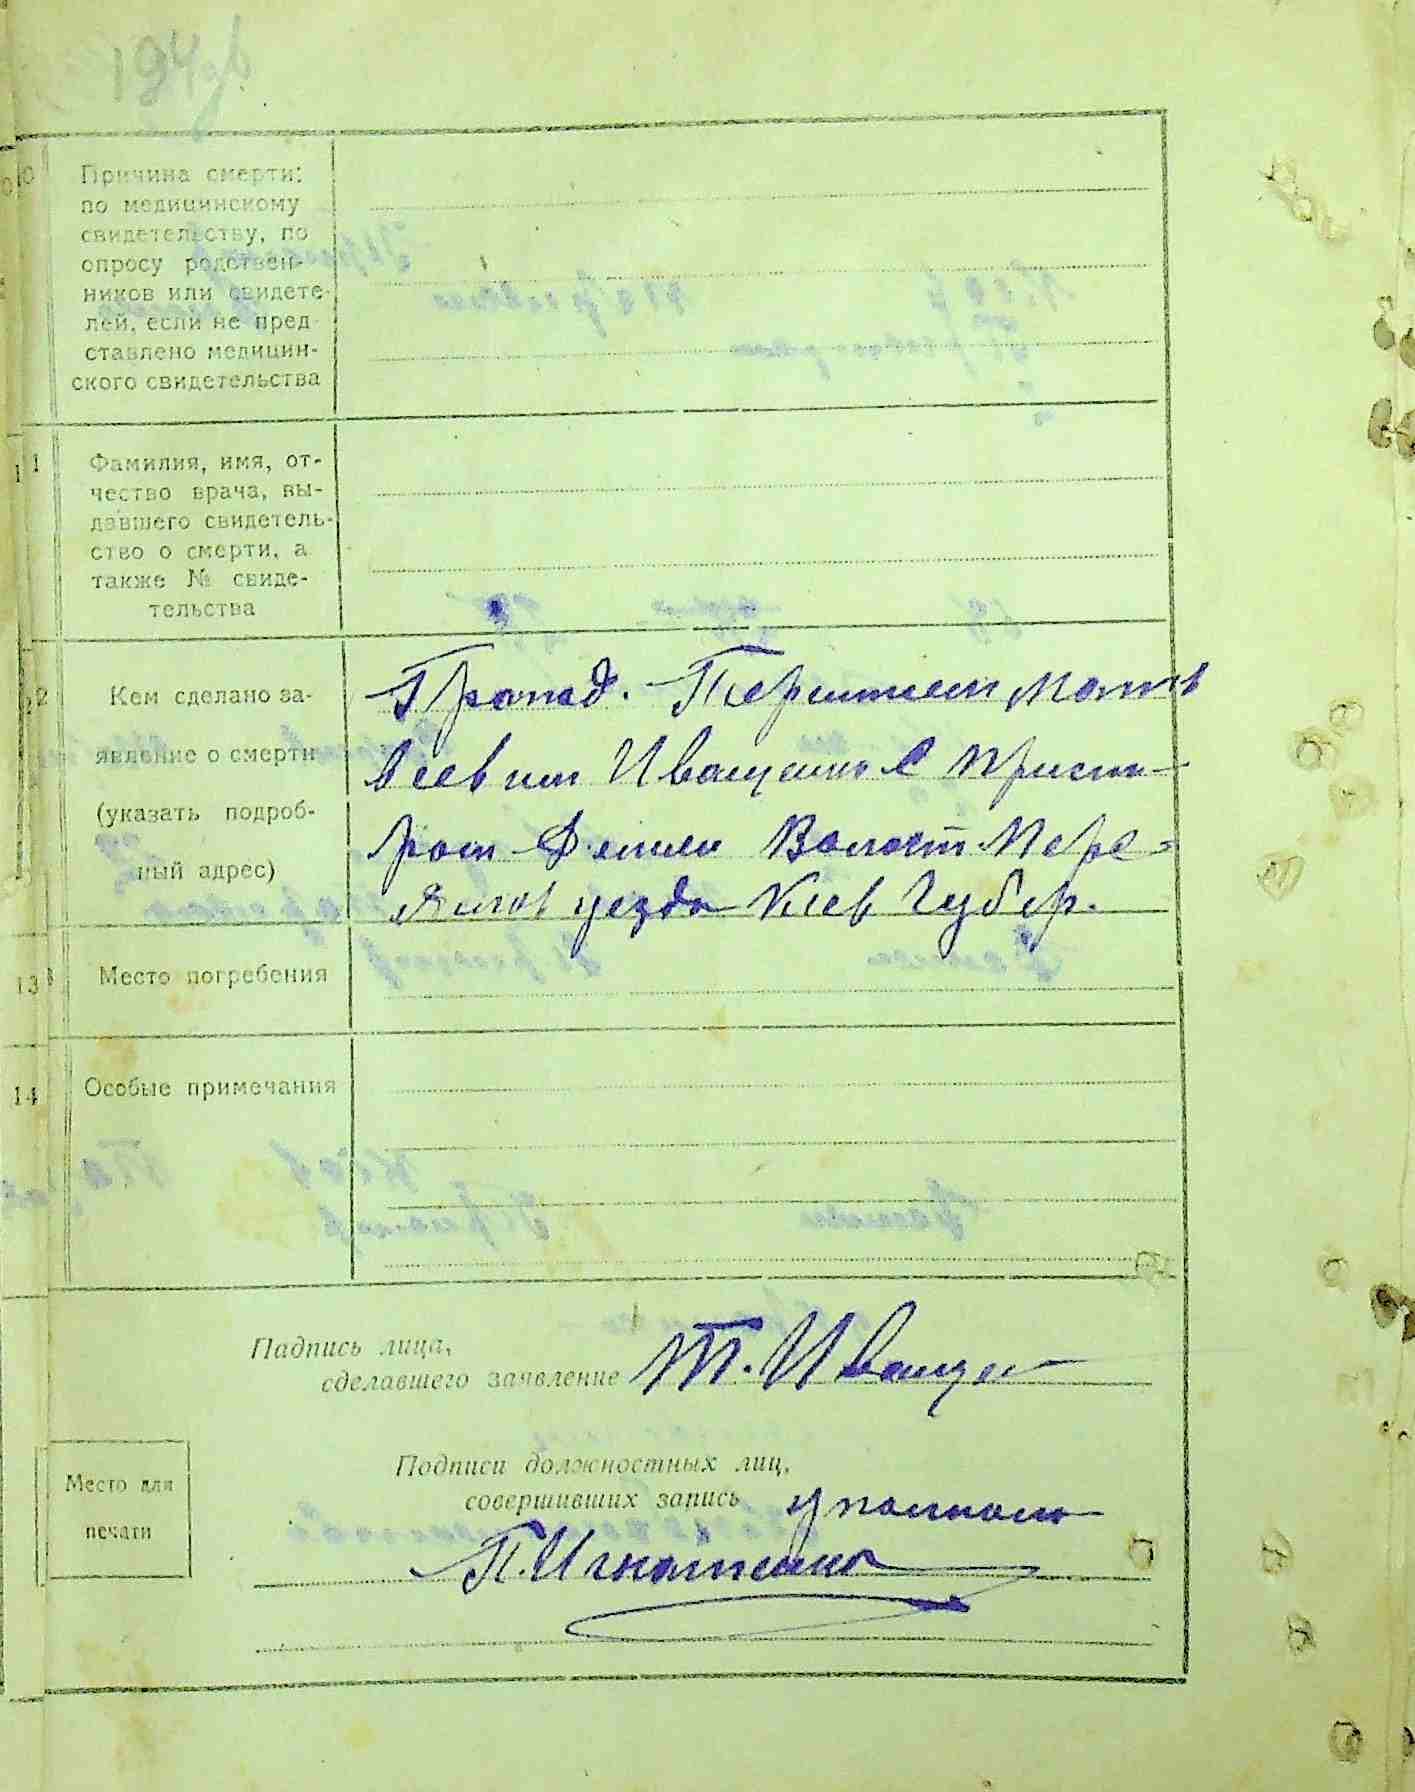 194 об
10
Причина смерти:
по медицинскому
свидетельству, по
опросу родствен-
ников или свидете-
лей, если не пред-
ставлено медицин-
ского свидетельства
11
Фамилия, имя, от-
чество врача, вы-
давшего свидетель-
ство о смерти, а
также № свиде-
тельства
12
Кем сделано за-
явление о смерти
(указать подроб-
ный адрес)
Гражд. Терентием Матв
веевим Иващенко С Прист
ром Демки Волост Пере=
яслов уезда Киев Губер.
13
Место погребения
14
Особые примечания
Падпись лица,
сделавшего заявление Т. Иваще
Подписи должностных лиц,
совершивших запись
П. Игнатенко
Место для
печати